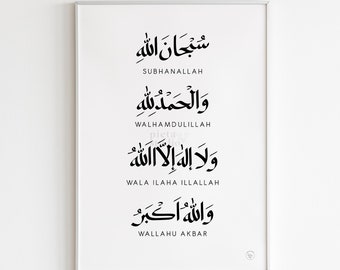 سُبْحَانَ اللهِ
SUBHANALLAH
وَالْحَمْدُ لِلهِ
WALHAMDULILLAH
وَلَا إِلٰهَ إِلَّا اللهُ
WALA ILAHA ILLALLAH
وَاللهُ أَكْبَرُ
WALLAHU AKBAR